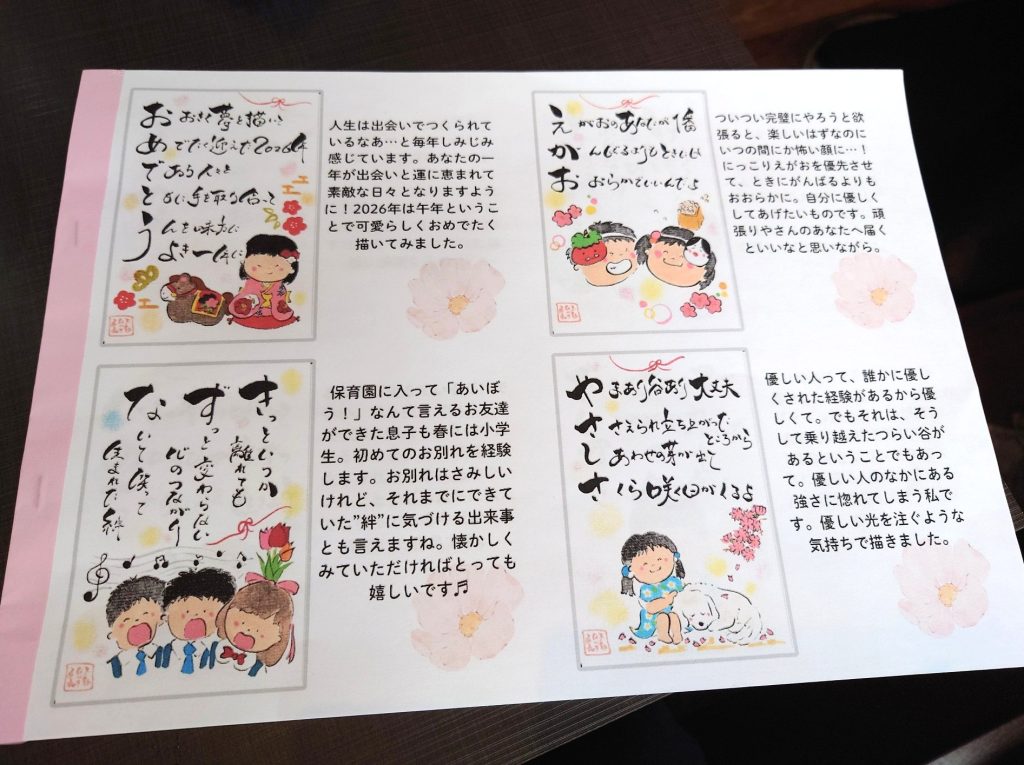 お おきく夢を描いて
め でたく迎えた2026年
で あう人々と
と もに手を取り合って
う んを味方に
よき一年に
人生は出会いでつくられて
いるなあ…と毎年しみじみ
感じています。あなたの一
年が出会いと運に恵まれて
素敵な日々となりますよう
に！2026年は午年というこ
とで可愛らしくおめでたく
描いてみました。
え がおのあなたが備
が んばるよりもときには
お おらかでいいんだよ
ついつい完璧にやろうと欲
張ると、楽しいはずなのに
いつの間にか怖い顔に…！
にっこりえがおを優先させ
て、ときにがんばるよりも
おおらかに。自分に優しく
してあげたいものです。頑
張りやさんのあなたへ届く
といいなと思いながら。
きっといつか
離れても
ずっと変わらない
心のつながり
ないて笑って
生まれた絆
保育園に入って「あいぼ
う！」なんて言えるお友達
ができた息子も春には小学
生。初めてのお別れを経験
します。お別れはさみしい
けれど、それまでにできて
いた”絆”に気づける出来事
とも言えますね。懐かしく
みていただければとっても
嬉しいです♬
や まあり谷あり大丈夫
さ さえられ立ち上がった
ところから
し あわせの芽が出て
さ くら咲く日がくるよ
優しい人って、誰かに優し
くされた経験があるから優
しくて。でもそれは、そう
して乗り越えたつらい谷が
あるということでもあっ
て。優しい人のなかにある
強さに惚れてしまう私で
す。優しい光を注ぐような
気持ちで描きました。